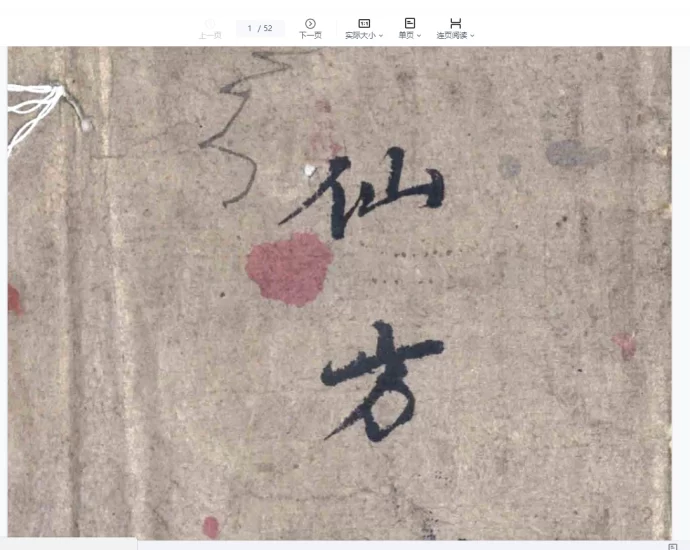 上一页
1 / 52
下一页
实际大小
单页
连页阅读
仙
方